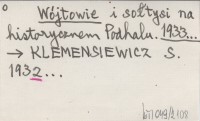 Wójtowie i sołtysi na
historycznem Podhalu. 1933...
→ KLEMENSIEWICZ S.
1932...